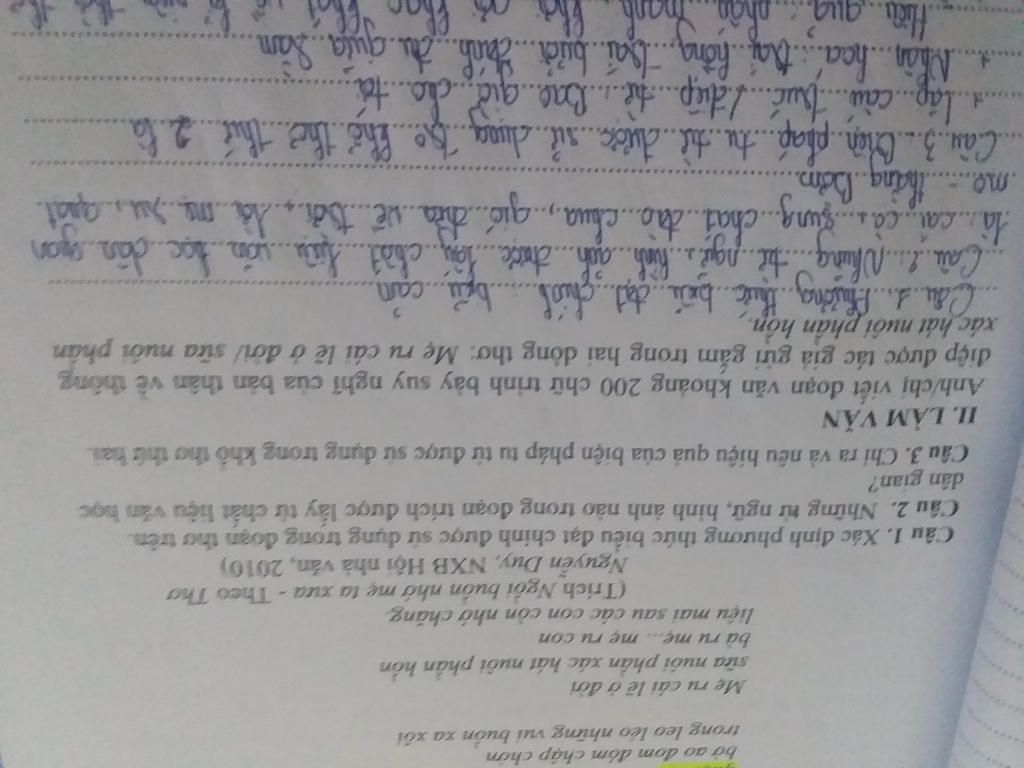 bờ ao đom đóm chập chờn
trong leo lẻo những vui buồn xa xôi
Mẹ ru cái lẽ ở đời
sữa nuôi phần xác hát nuôi phần hồn
bà ru mẹ... mẹ ru con
liệu mai sau các con còn nhớ chăng.
(Trích Ngồi buồn nhớ mẹ ta xưa - Theo Thơ
Nguyễn Duy, NXB Hội nhà văn, 2010)
Câu 1. Xác định phương thức biểu đạt chính được sử dụng trong đoạn thơ trên.
Câu 2. Những từ ngữ, hình ảnh nào trong đoạn trích được lấy từ chất liệu văn học
dân gian?
Câu 3. Chỉ ra và nêu hiệu quả của biện pháp tu từ được sử dụng trong khổ thơ thứ hai.
II. LÀM VĂN
Anh/chị viết đoạn văn khoảng 200 chữ trình bày suy nghĩ của bản thân về thông
điệp được tác giả gửi gắm trong hai dòng thơ: Mẹ ru cái lẽ ở đời/ sữa nuôi phần
xác hát nuôi phần hồn.
Câu 1. Phương thức biểu đạt chính: biểu cảm
Câu 2. Những từ ngữ, hình ảnh được lấy chất liệu văn học dân gian
là: cái cò, sung chát đào chua, gió đưa về trời, lời mẹ ru, quạt
mo - thằng Bờm
Câu 3. Biện pháp tu từ được sử dụng trg khổ thơ thứ 2 là
+ Lặp cấu trúc / điệp từ: Bao giờ cho tới
+ Nhân hoá: trái hồng trái bưởi đánh đu giữa rằm
Hiệu quả: nhấn mạnh